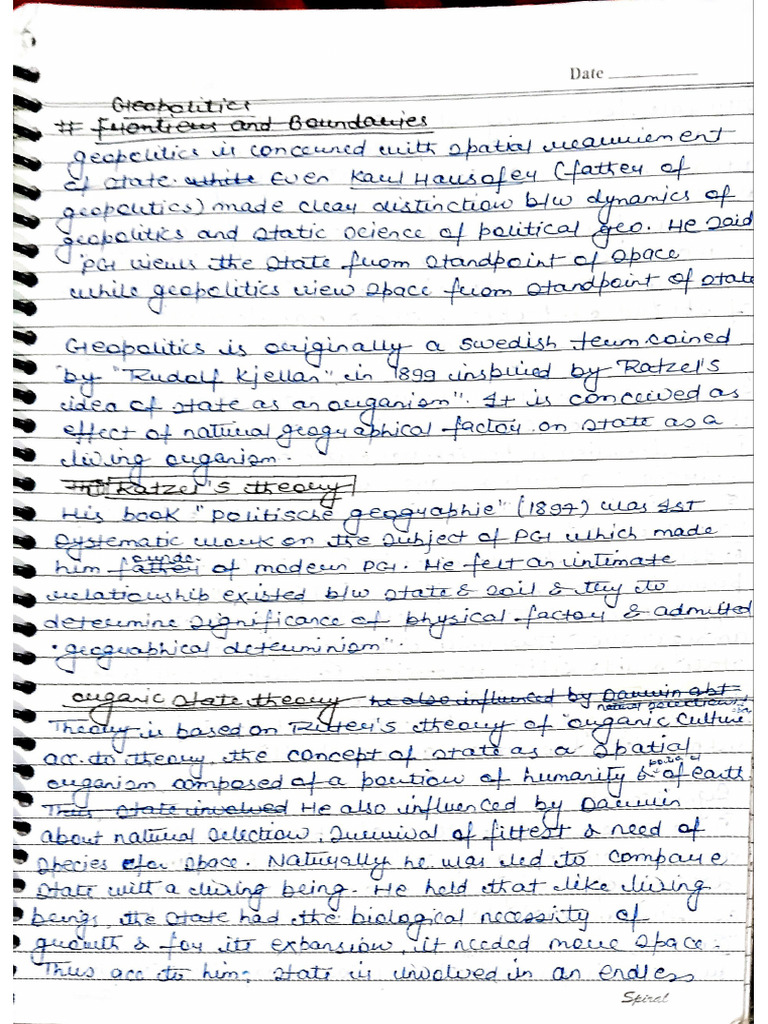 Date
Geopolitics
# Frontiers and Boundaries
geopolitics is concerned with spatial requirement
of state. while Even Karl Hausofer (father of
geopolitics) made clear distinction b/w dynamics of
geopolitics and static science of political geo. He said
PG views the state from standpoint of space
while geopolitics view space from standpoint of state
Geopolitics is originally a Swedish term coined
by "Rudolf Kjellan" in 1899 inspired by "Ratzel's
idea of state as an organism". It is conceived as
effect of natural geographical factor on state as a
living organism.
Ratzel's theory
His book "Politische geographie" (1897) was Ist
systematic work on the subject of PG which made
founder
him father of modern PG. He felt an intimate
relationship existed b/w state & soil & try to
determine significance of physical factor & admitted
"geographical determinism".
organic state theory he also influenced by Darwin abt
natural selection
Theory is based on Ritter's theory of "organic culture
acc. to theory, the concept of state as a spatial
organism composed of a portion of humanity & of earth.
This state involved He also influenced by Darwin
about natural selection, survival of fittest & need of
species for space. Naturally he was led to compare
state with a living being. He held that like living
beings, the state had the biological necessity of
growth & for its expansion, it needed more space.
Thus acc to him; state is involved in an endless
Spiral